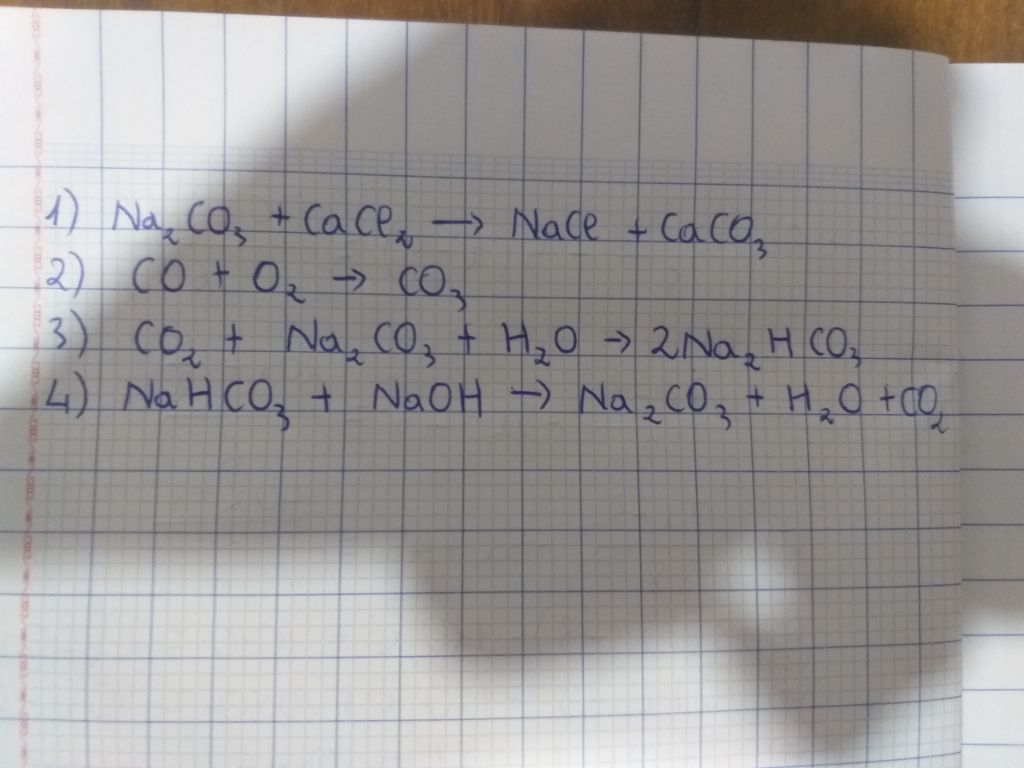 1) Na₂CO₃ + CaCl₂ → NaCl + CaCO₃
2) CO + O₂ → CO₃
3) CO₂ + Na₂CO₃ + H₂O → 2Na₂HCO₃
4) NaHCO₃ + NaOH → Na₂CO₃ + H₂O + CO₂